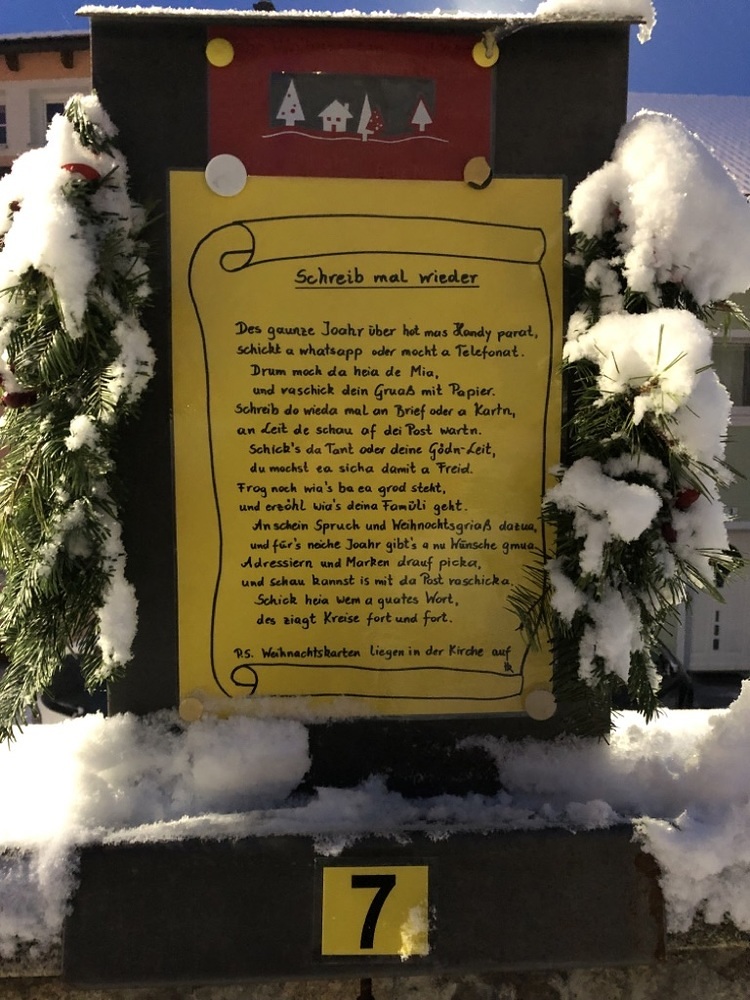 Schreib mal wieder
Des gaunze Joahr über hot mas Handy parat,
schickt a whatsapp oder mocht a Telefonat.
Drum moch da heia de Mia,
und vaschick dein Gruaß mit Papier.
Schreib do wieda mal an Brief oder a Kartn,
an Leit de schau af dei Post wartn.
Schick's da Tant oder deine Gödn-Leit,
du mochst ea sicha damit a Freid.
Frog noch wia's ba ea grod steht,
und erzöhl wia's deina Famüli geht.
An schein Spruch und Weihnachtsgriaß dazua,
und für's neiche Joahr gibt's a nu Wünsche gmua
Adressiern und Marken drauf picka,
und schau kannst is mit da Post vaschicka.
Schick heia wem a guates Wort,
des ziagt Kreise fort und fort.
P.S. Weihnachtskarten liegen in der Kirche auf
7